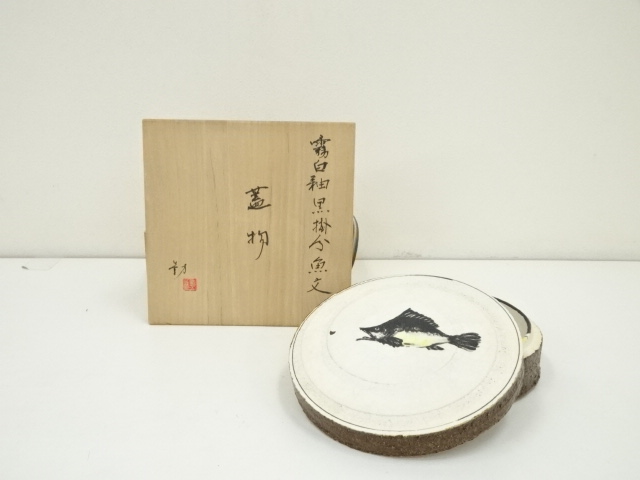 霧白釉黒掛分魚文
蓋物